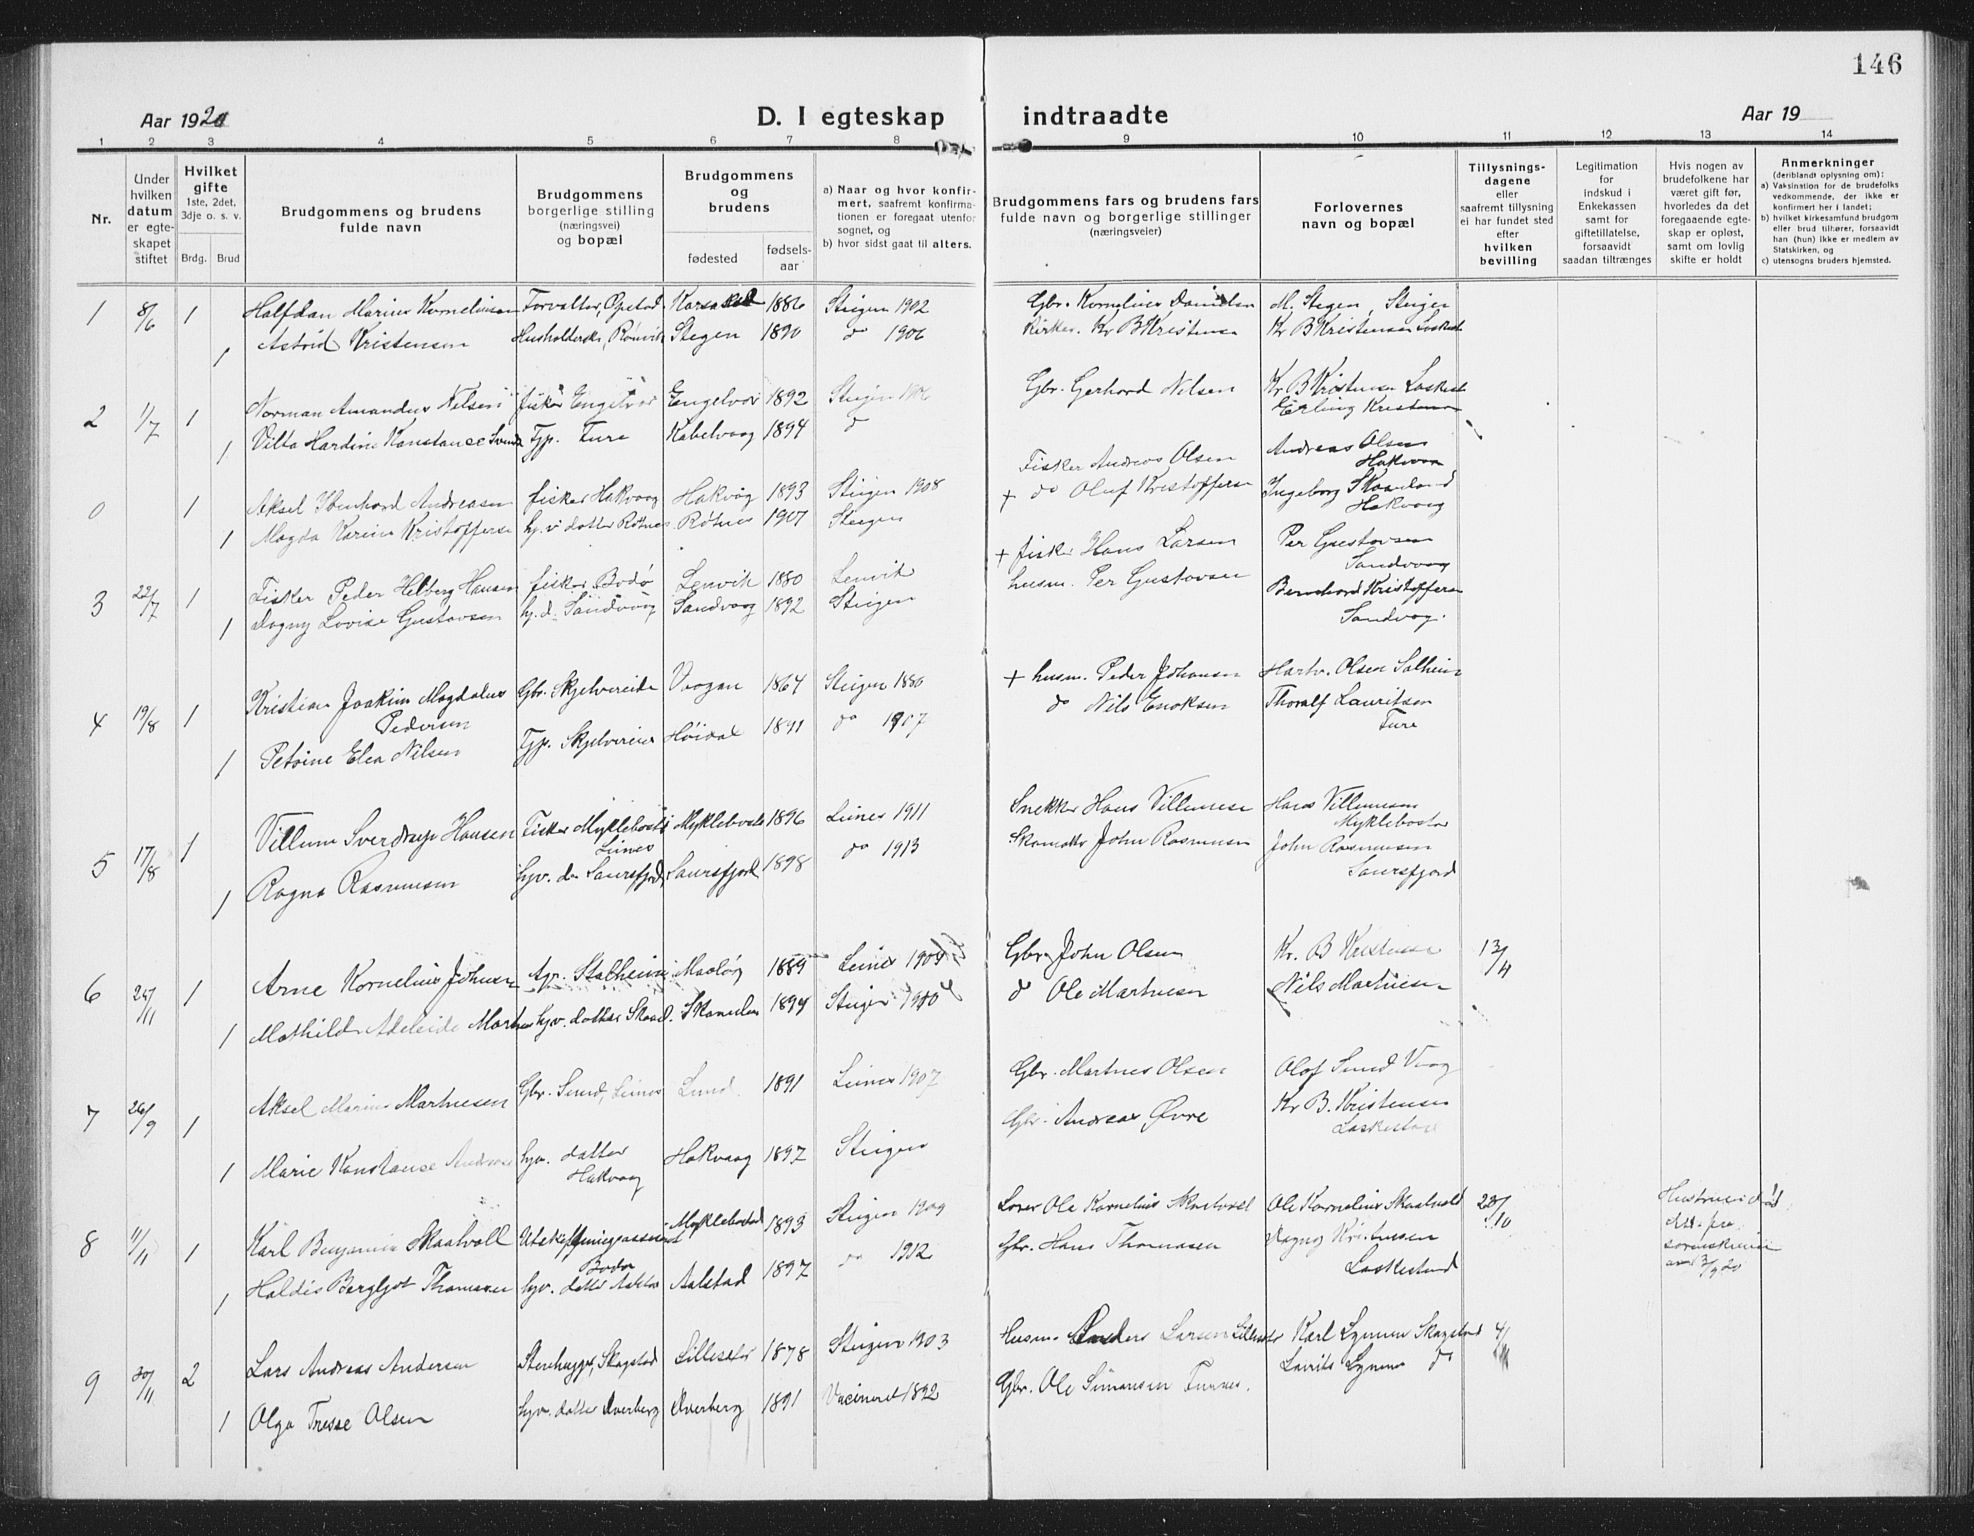 146
Aar 1920
D. I egteskap indtraadte
Aar 19
1 2 3 4 5 6 7 8 9 10 11 12 13 14
Nr.
Under hvilken datum er egteskapet stiftet
Hvilket gifte 1ste, 2det, 3dje o. s. v.
Brdg. Brud
Brudgommens og brudens fulde navn
Brudgommens borgerlige stilling (næringsvei) og bopæl
Brudgommens og brudens
fødested
fødselsaar
a) Naar og hvor konfirmert, saafremt konfirmationen er foregaat utenfor sognet, og
b) hvor sidst gaat til alters.
Brudgommens fars og brudens fars fulde navn og borgerlige stillinger (næringsveier)
Forlovernes navn og bopæl
Tillysningsdagene eller saafremt tillysning ei har fundet sted efter hvilken bevilling
Legitimation for indskud i Enkekassen samt for giftetillatelse, forsaavidt saadan tiltrænges
Hvis nogen av brudefolkene har været gift før, hvorledes da det foregaaende egteskap er opløst, samt om lovlig skifte er holdt
Anmerkninger (deriblandt oplysning om):
a) Vaksination for de brudefolks vedkommende, der ikke er konfirmert her i landet;
b) hvilket kirkesamfund brudgom eller brud tilhører, forsaavidt han (hun) ikke er medlem av Statskirken, og
c) utensogns bruders hjemsted.
1 8/6 1 Halfdan Marius Korneliussen Forvalter, 1886 Steigen 1902 Gbr. Kornelius Danielsen M. Stegen, Steigen
1 Astrid Kristensen Husholderske, Rønvik Stegen 1890 do 1906 Kirkes. Kr B Kristensen Kr B Kristensen Laskest
2 1/7 1 Norman Amandus Nilsen fisker Engelvær Engelvær 1892 Steigen Gbr. Gerhard Nilsen Kr. B Kristensen Laskest
Erling Kristensen
1 Hardine Konstanse Tjp. Ture Kabelvaag 1894 do Fisker Andreas Olsen Andreas Olsen
Hakvaag
0 1 Aksel Andreasen fisker Hakvaag Hakvåg 1893 Steigen 1908 + do Oluf Kristoffersen Ingeborg Skaanland
Hakvaag
1 Magda Karine Kristoffersen hjv. datter Røtnes Røtnes 1907 Steigen
3 22/7 1 Fisker Peder Helberg Hansen fisker Bodø Lenvik 1880 Lenvik + fisker Hans Larsen Per Gustavsen
Sandvaag
1 Dagny Lovise Gustavsen hj. d. Sandvaag Sandvaag 1892 Steigen husm. Per Gustavsen Bernhard Kristoffersen
Sandvag.
4 19/8 1 Kristian Joakim Magdalus Gbr. Skjelvereide Vaagan 1864 Steigen 1880 + husm. Peder Johansen Hartv. Olsen Solheim
Pedersen
1 Petrine Elea Nilsen Tjp. Skjelvereide 1891 do 1907 do Nils Enoksen Thoralf Lauritsen
Ture
5 17/8 1 Villum Sverdrup Hansen Fisker Myklebostad Myklebostad 1896 Leines 1911 Snekker Hans Villumsen Hans Villumsen
Leines Myklebostad
1 Ragna Rasmussen hjv. d. Saursfjord Saursfjord 1898 do 1913 Skomaker John Rasmussen John Rasmussen
Saursfjord
6 25/11 1 Arne Kornelius Johnsen Agr. Stalheim 1889 Leines Gbr John Olsen Kr. B Kristensen 13/11
1 Mathilde Adeleide hjv. datter 1894 Steigen 1910 do Ole Martinesen Nils Martinesen
7 26/9 1 Aksel Marius Martnesen Gbr. Sund, Leines Sund 1891 Leines 1907 Gbr. Martnes Olsen Olaf Sund Vaag
1 Marie Konstanse hjv. datter Hakvaag 1897 Steigen Gbr. Andreas Øvre Kr B. Kristensen
Hakvaag Laskestad
8 11/11 1 Karl Benjamin Skaalvoll Utskiftningsassistent Myklebostad 1893 Steigen 1909 Ole Kornelius Skaalvoll Ole Kornelius Skaalvold 23/10
Bodø
1 Haldis Bergljot Thomassen hjv. datter Aalstad 1897 do 1912 Gbr. Hans Thomassen Dagny Kristensen
Laskestad
9 30/11 2 Lars Andreas Andersen Stenhugger, Skagstad Lillesetr 1878 Steigen 1903 Husm. Anders Larsen Karl Lynum Skagstad 4/11
1 Olga Olsen hjv. datter Averberg Averberg 1891 Vacineret 1892 Gbr. Ole Simonsen Lavrits Lynum do